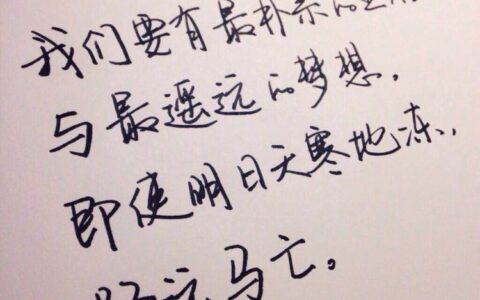 我们要有最朴素的生活
与最遥远的梦想.
即使明日天寒地冻,
路远马亡。